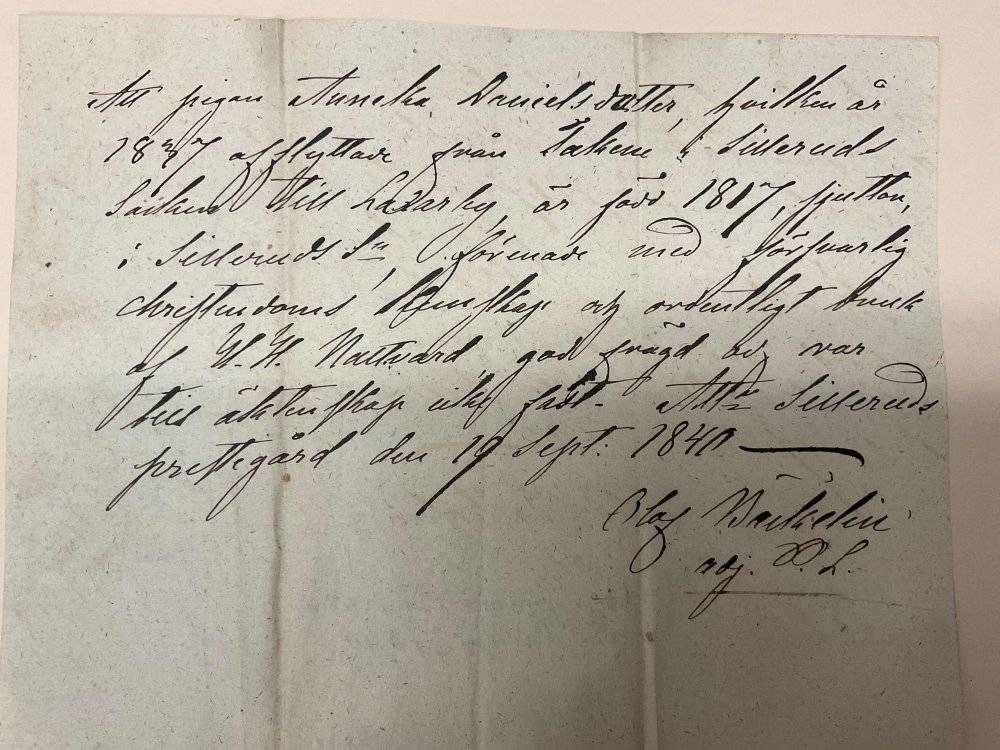 Att pigan Annika Danielsdotter, hvilken år
1837 afflyttade från Takene i Silleruds
Socken till Lazarby, är född 1817, sjutton,
i Silleruds Sn, försedd med försvarlig
Christendoms kunskap och ordentligt bruk
af H. H. Nattvard, god frägd och var
till äktenskap icke fäst. Att. Silleruds
prestegård den 19 Sept. 1840
Olof Bäckelin
adj. P. L.